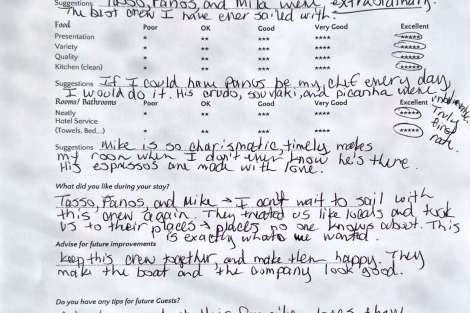 Suggestions Tasso, Panos, and Mike were extraordinary.
The best crew I have ever sailed with.
Food Poor OK Good Very Good Excellent
Presentation * ** *** **** *****
Variety * ** *** **** *****
Quality * ** *** **** *****
Kitchen (clean) * ** *** **** *****
Suggestions If I could have Panos be my chef every day,
I would do it. His crudo, souvlaki, and picanha were
Rooms/ Bathrooms Poor OK Good Very Good Excellent
Neatly * ** *** **** *****
Hotel Service
(Towels, Bed...) * ** *** **** *****
Truly
first
rate.
Suggestions Mike is so charismatic, timely, makes
my room when I don't even know he's there.
His espressos are made with love.
What did you like during your stay?
Tasso, Panos, and Mike → I can't wait to sail with
this crew again. They treated us like locals and took
us to their places → places no one knows about. This
is exactly what we wanted.
Advise for future improvements
Keep this crew together and make them happy. They
make the boat and the company look good.
Do you have any tips for future Guests?